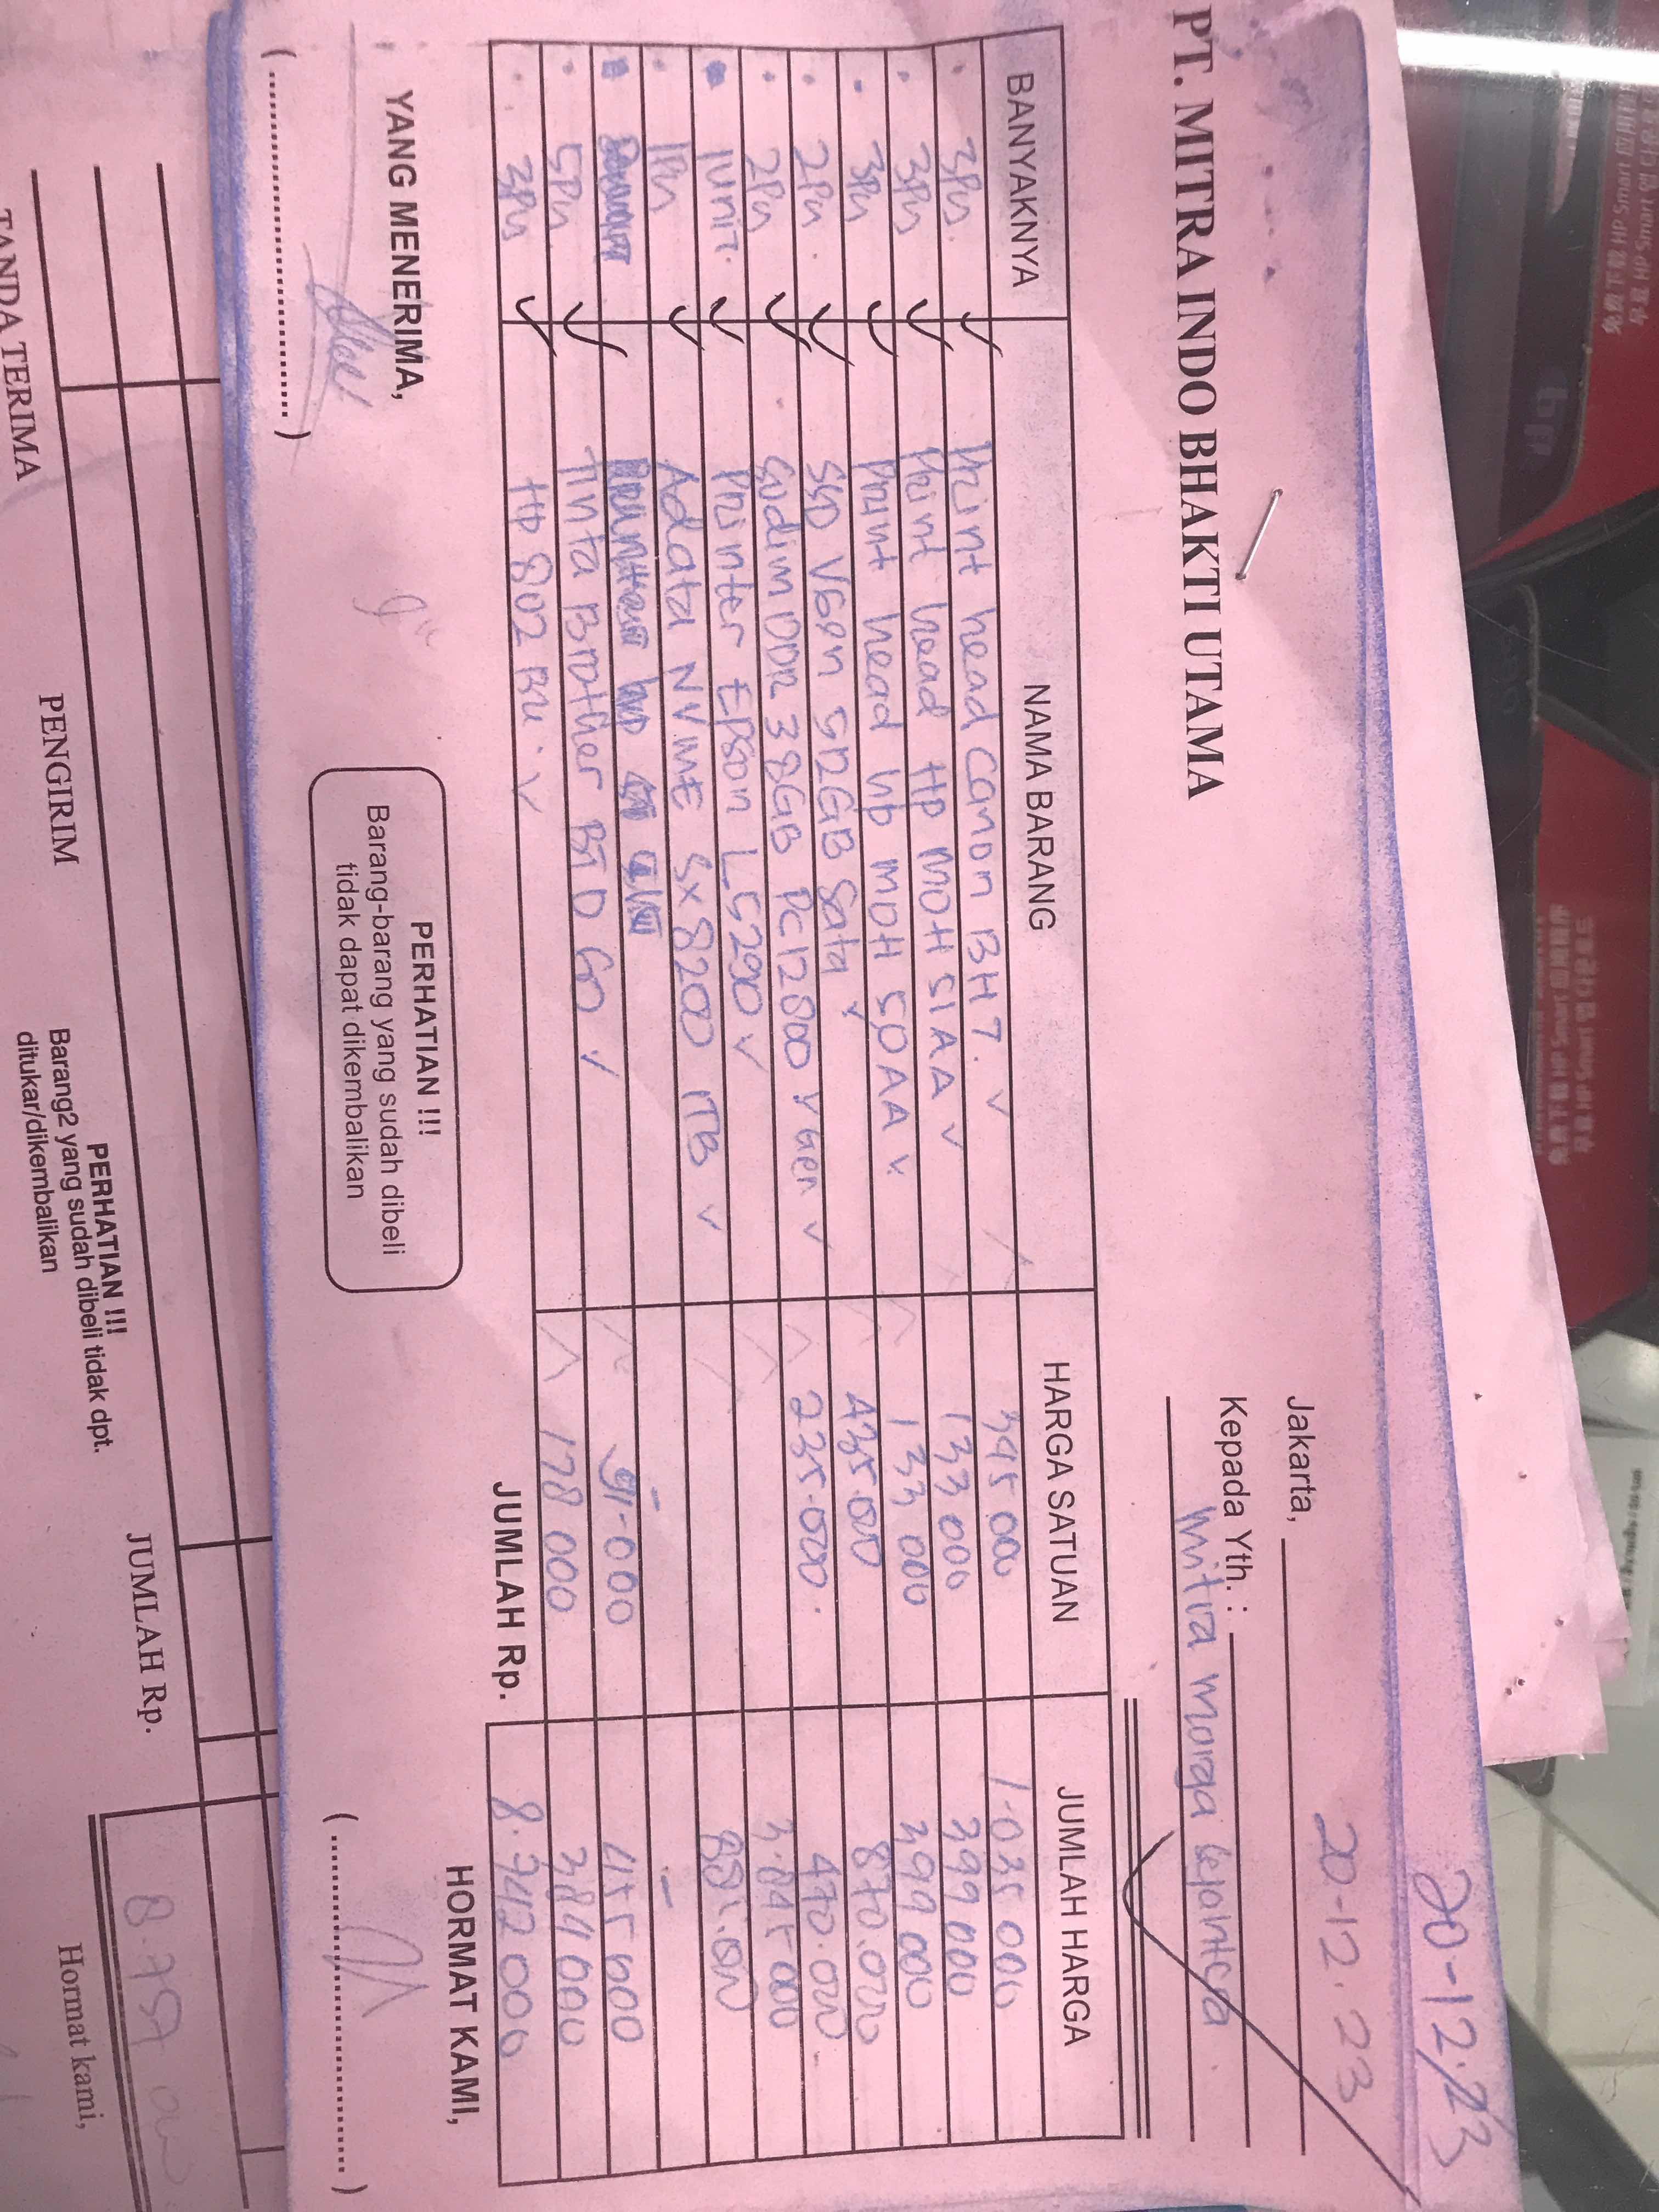 20-12.23
PT. MITRA INDO BHAKTI UTAMA
Jakarta, 20-12.23
Kepada Yth. :
mitra morga
BANYAKNYA NAMA BARANG HARGA SATUAN JUMLAH HARGA
3Pcs. Print head Canon BH7. 345.000 1.035.000
3Pcs Print head Hp MOH51AA 133 000 399 000
3Pcs Print head hp MOH 50AA 133 000 399 000
2Pcs. SSD VGen 512GB Sata 435.000 870.000
2Pcs Sodim DDR 3 8GB PC12800 VGen 235.000. 470.000.
1unit. Printer Epson L5290 3.845.000
1Pcs Adata NVME SX8200 1TB 885.000
5Pcs Tinta Brother BTD 60 91.000 455 000
3Pcs Hp 802 128 000 384 000
JUMLAH Rp. 8.742 000
YANG MENERIMA,
PERHATIAN !!!
Barang-barang yang sudah dibeli
tidak dapat dikembalikan
HORMAT KAMI,
JUMLAH Rp.
TANDA TERIMA
PENGIRIM
PERHATIAN !!!
Barang2 yang sudah dibeli tidak dpt.
ditukar/dikembalikan
Hormat kami,